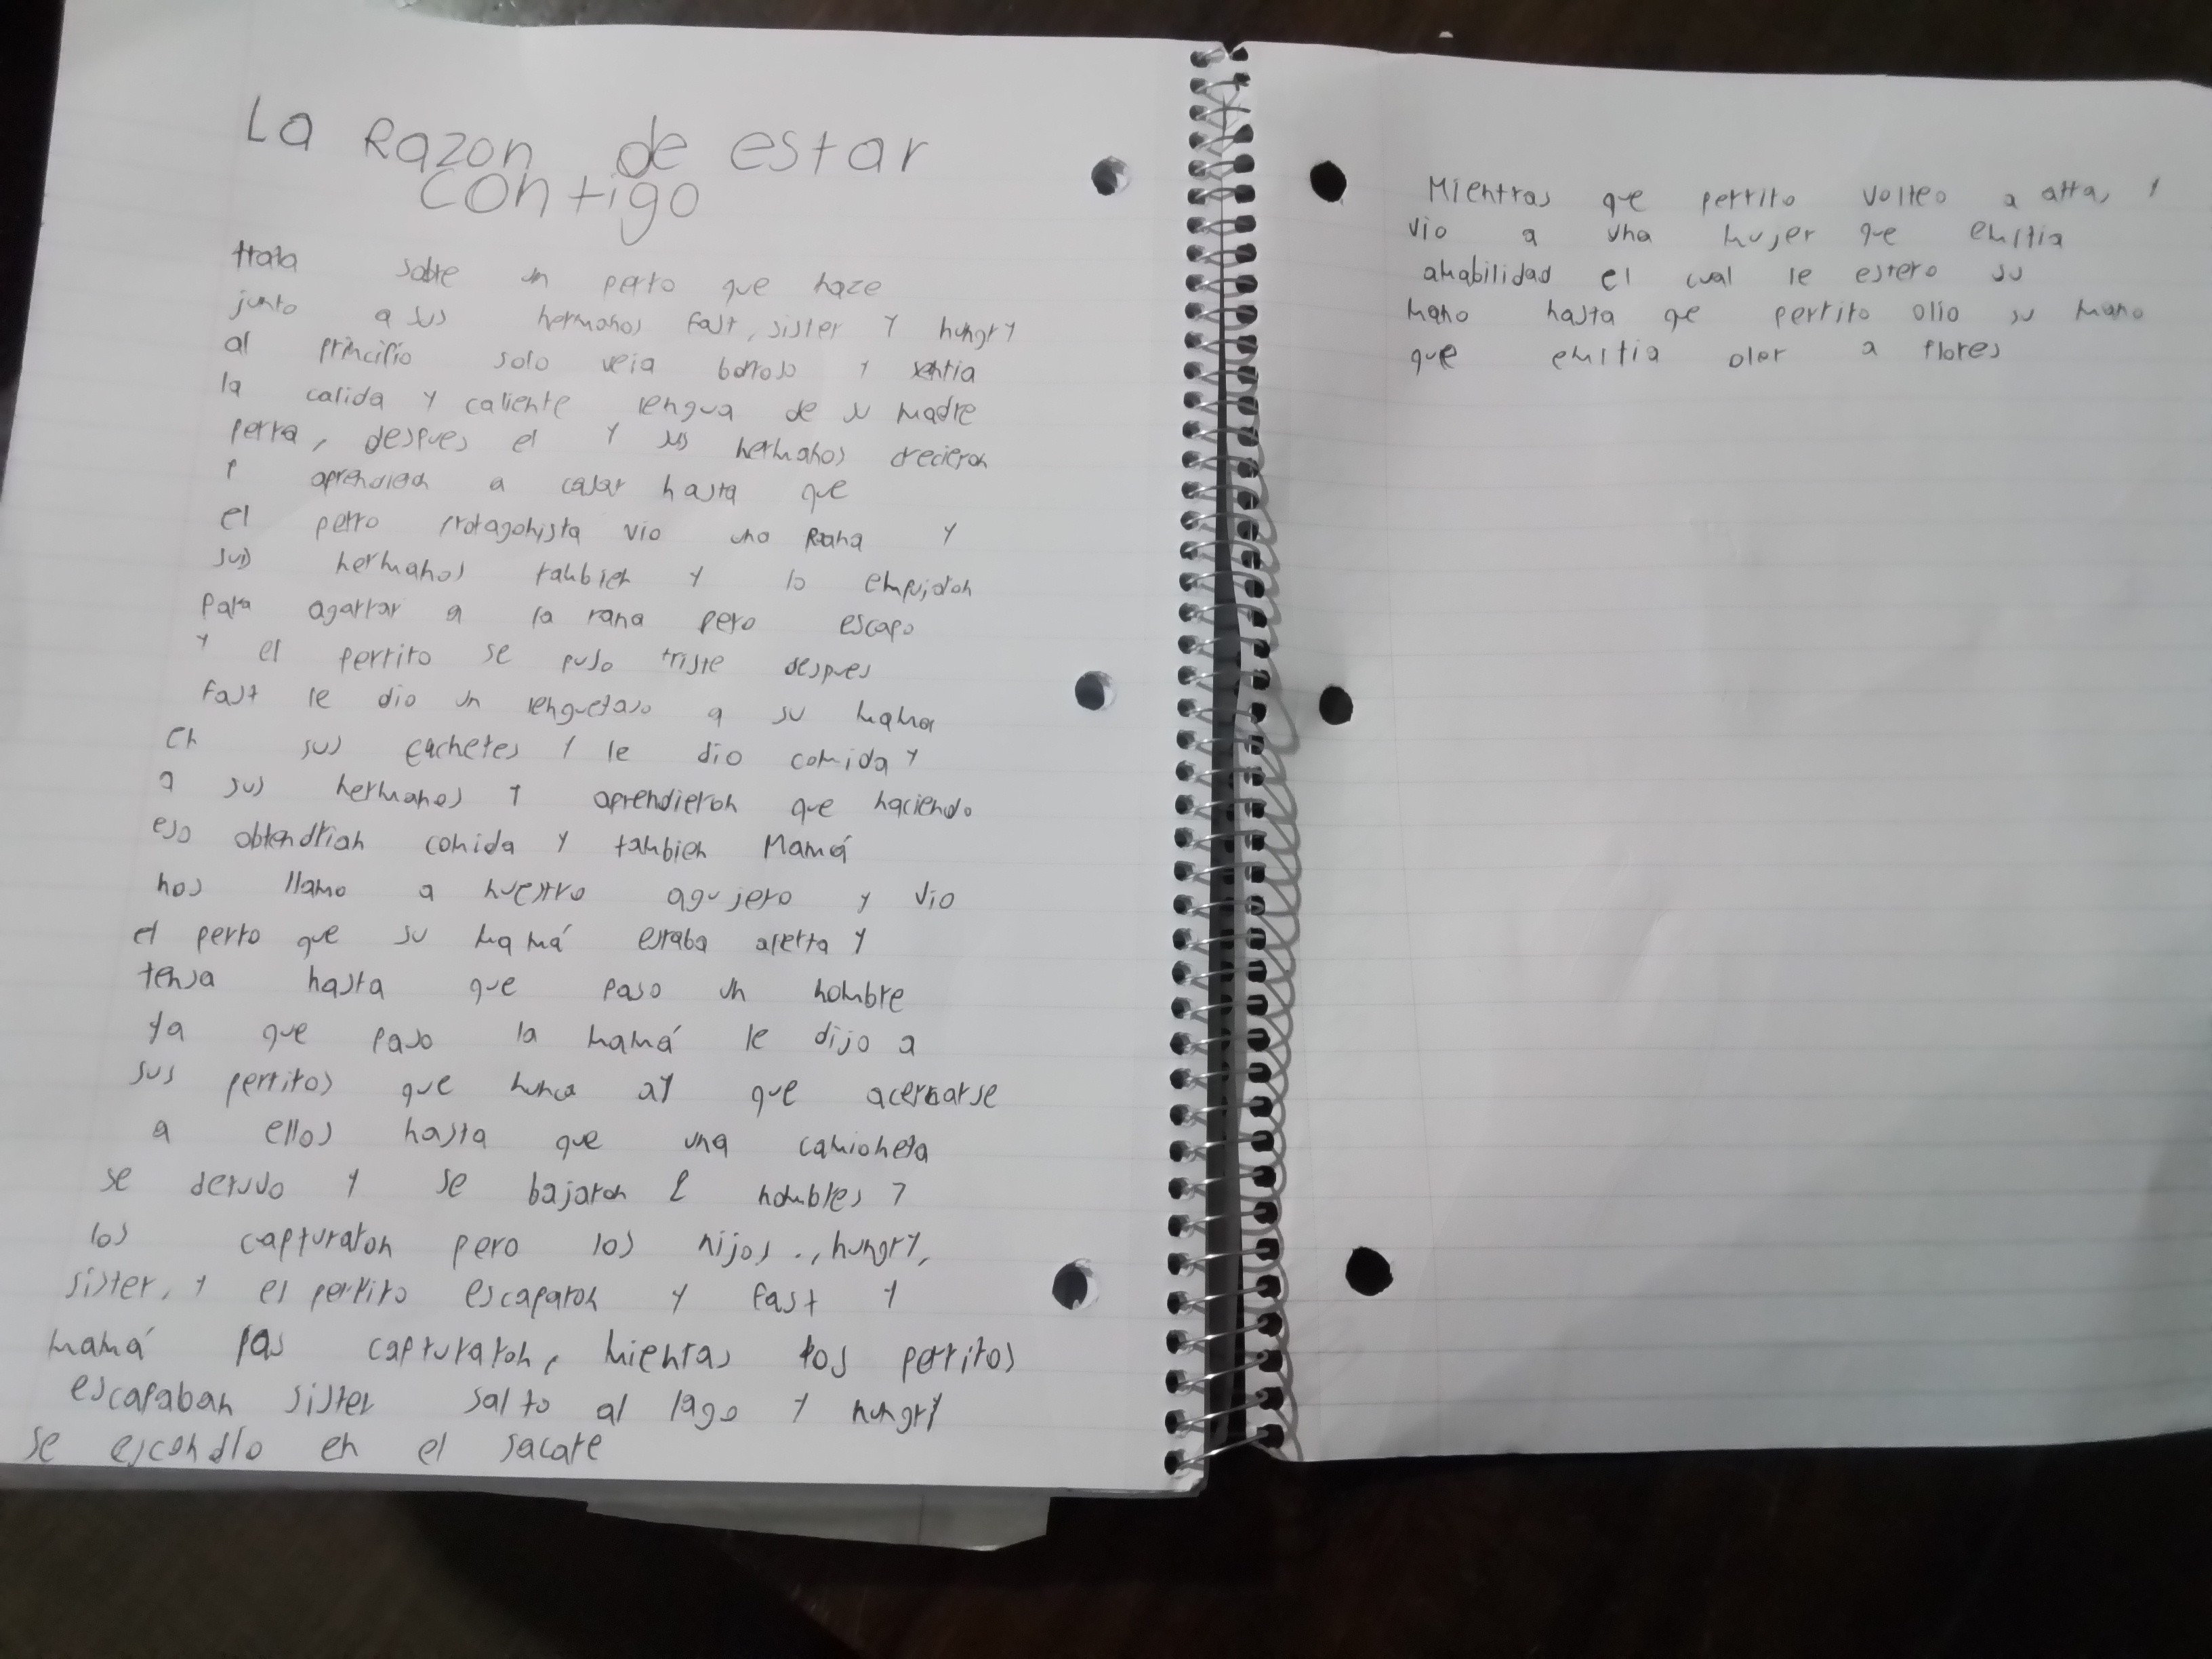 La Razon de estar
contigo
trata sobre un perro que naze
junto a sus hermanos fast, sister y hungry
al principio solo veia borroso y sentia
la calida y caliente lengua de su madre
perra, despues el y sus hermanos crecieron
y aprendieron a casar hasta que
el perro protagonista vio una Rana y
sus hermanos tambien y lo empujaron
para agarrar a la rana pero escapo
y el perrito se puso triste despues
Fast le dio un lenguetaso a su mama
en sus cachetes y le dio comida y
a sus hermanos y aprendieron que haciendo
eso obtendrian comida y tambien Mamá
nos llamo a nuestro agujero y vio
el perro que su mamá estaba alerta y
tensa hasta que paso un hombre
ya que paso la mamá le dijo a
sus perritos que nunca ay que acercarse
a ellos hasta que una camioneta
se detuvo y se bajaron 2 hombres y
los capturaron pero los hijos ., hungry,
sister, y el perrito escaparon y fast y
mamá las capturaron, mientras los perritos
escapaban sister salto al lago y hungry
se escondio en el sacate
Mientras que perrito volteo a atras y
vio a una mujer que emitia
amabilidad el cual le estero su
mano hasta qe perrito olio su mano
que emitia olor a flores